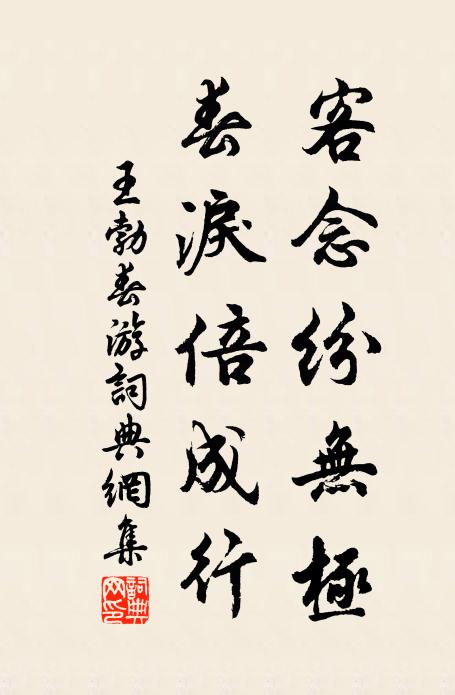 客念紛無極
春淚倍成行
王勃春游詞典網集
詞典網印